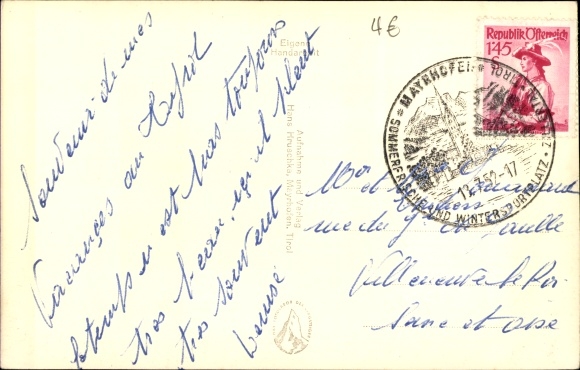 Souvenir de mes
Vacances au Tyrol
le temps n'est pas toujours
très beau, ici il pleut
très souvent
Louise
Eigene
Handabzug
Aufnahmen und Verlag
Hans Hruschka, Mayrhofen, Tirol
4€
Republik Österreich
1'45
MAYRHOFEN
ZILLERTAL, TIROL
SOMMERFRISCHE UND WINTERSPORTPLATZ
12.7.52-17
Mr et
rue de
Villeneuve le Roi
Seine et Oise